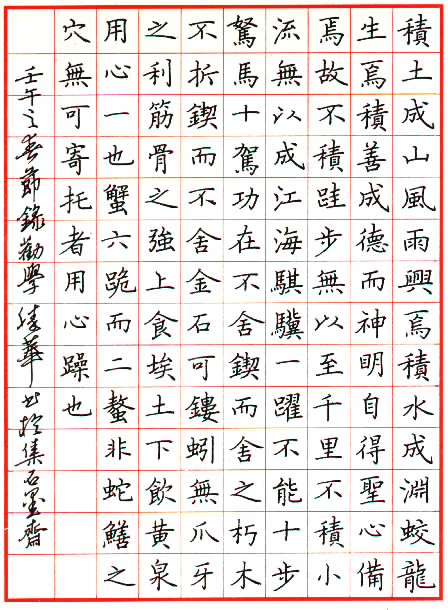 積土成山風雨興焉積水成淵蛟龍
生焉積善成德而神明自得聖心備
焉故不積跬步無以至千里不積小
流無以成江海騏驥一躍不能十步
駑馬十駕功在不舍鍥而舍之朽木
不折鍥而不舍金石可鏤蚓無爪牙
之利筋骨之強上食埃土下飲黃泉
用心一也蟹六跪而二螯非蛇鱔之
穴無可寄托者用心躁也
壬午之春節錄勸學 華書於集石墨齋